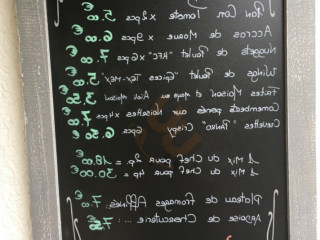 Pan Con Tomate x2pcs 5.00€
Accras Morue x9pcs 6.00€
Nuggets de Poulet "KFC" x6pcs 7.00€
Wings de Poulet "Epices" TEX-MEX 5.00€
Frites Maison et mayo ou Aïoli Maison 3.50€
Camembert panés aux Noisettes x4pcs 7.00€
Crevettes "Panko" Crispy 6pcs 6.50€
1 Mix du Chef pour 2p. = 18.00€
1 Mix du Chef pour 4p = 30.00€
Plateau de fromages Affinés: 7.00€
Ardoise de Charcuterie ...: 7.50€